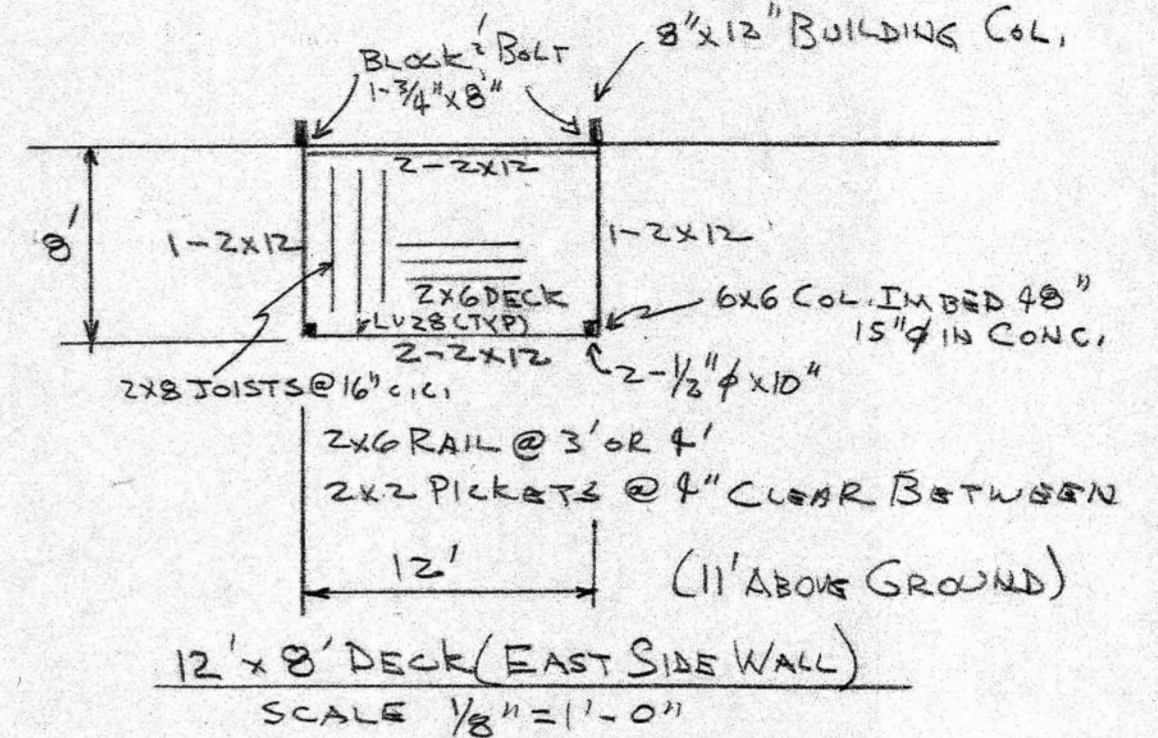 8"x12" BUILDING COL.
BLOCK & BOLT
1-3/4"x8"
2-2x12
8'
1-2x12
1-2x12
2x6 DECK
LU28 (TYP)
2-2x12
6x6 COL. IMBED 48"
15"ϕ IN CONC.
2-1/2"ϕ x10"
2x8 JOISTS @ 16" C.C.
2x6 RAIL @ 3' OR 4'
2x2 PICKETS @ 4" CLEAR BETWEEN
12'
(11' ABOVE GROUND)
12' x 8' DECK (EAST SIDE WALL)
SCALE 1/8" = 1'-0"